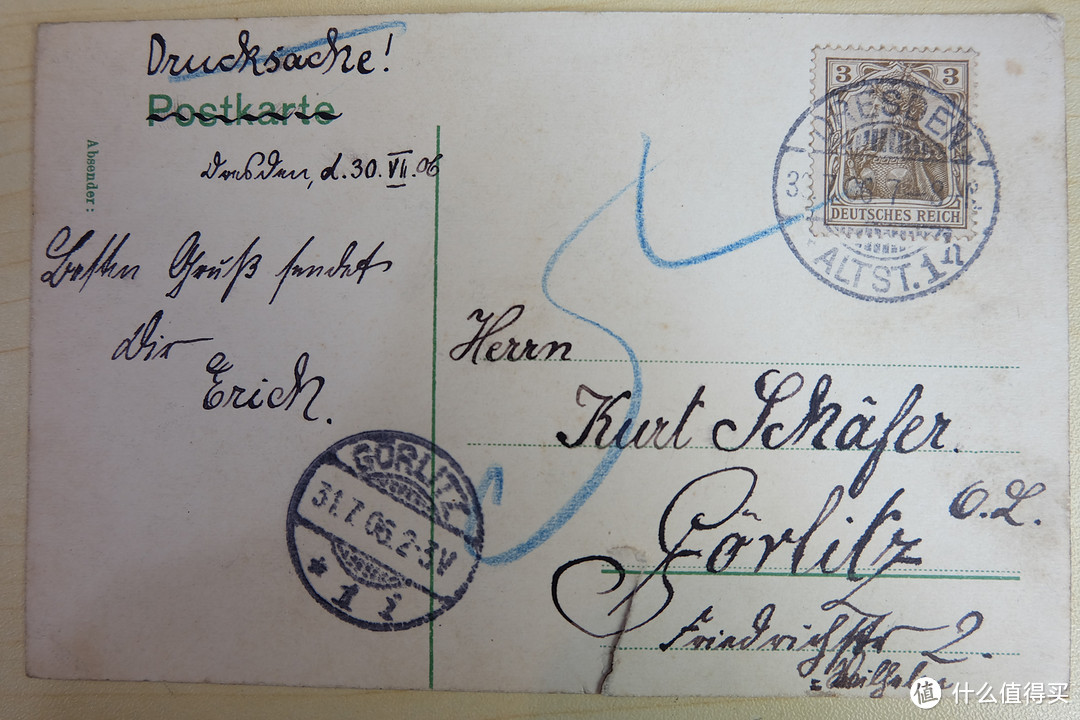 Drucksache!
Postkarte
Absender:
Dresden, d. 30. VII. 06
Besten Gruß sendet
Dir
Erich.
3 3
DEUTSCHES REICH
DRESDEN
ALTST. 1 n
GÖRLITZ
31.7.06.2-3V
* 1 i
Herrn
Kurt Schäfer.
Görlitz O.L.
Friedrichstr 2.
=Wilhelm
值 什么值得买